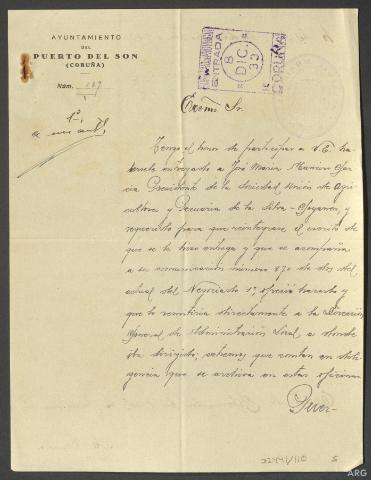 AYUNTAMIENTO
DEL
PUERTO DEL SON
(CORUÑA)
Núm.
ENTRADA
8 DIC. 33
CORUÑA
Excmo Sr.
Tengo el honor de participar a V.E. ha-
berle entregado a José María Gar-
cia Presidente de la Sociedad Unión de Agri-
cultores y Pecuaria de la Silva-
requerido para que reintegrase el escrito de
que se le hizo entrega y que se acompaña
a su comunicación número 870 de dos del
actual del Negociado 1º, ofreció hacerlo y
que lo remitiría directamente a la Dirección
General de Administración Local a donde
iba dirigido; extremos que constan en dili-
gencia que se archiva en estas oficinas.
22441/110
5
ARG